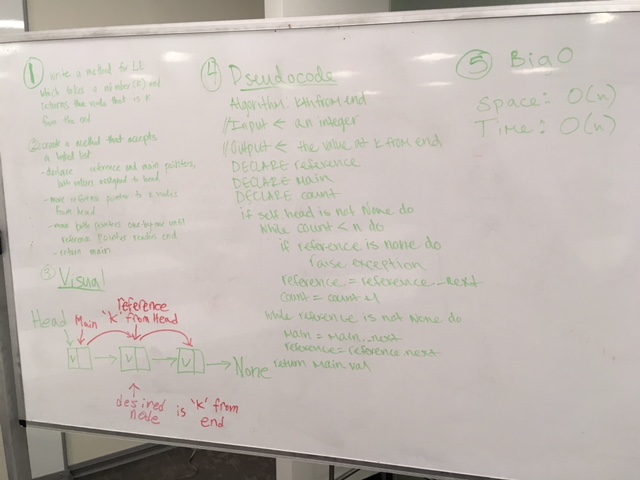 ① write a method for LL
which takes a number (k) and
returns the node that is k
from the end
② create a method that accepts
a linked list
- declare reference and main pointers,
both values assigned to head
- move reference pointer to k nodes
from head
- move both pointers one-by-one until
reference pointer reaches end
- return main
③ Visual
Head
Main
reference
'k' from Head
V
V
V
None
desired
node
is 'k' from
end
④ Pseudocode
Algorithm: kthfromend
//Input ← an integer
//Output ← the value at k from end
DECLARE reference
DECLARE Main
DECLARE count
if self head is not None do
while count < n do
if reference is none do
raise exception
reference = reference._next
count = count +1
while reference is not None do
Main = Main._next
reference = reference.next
return Main.val
⑤ Big O
Space: O(n)
Time: O(n)